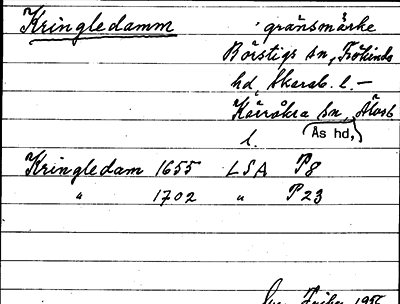 Kringledamm gränsmärke
Börstigs sn, Frökinds
hd, Skarab. l. –
Kärråkra sn, Älvsb
Ås hd,
l.
Kringledam 1655 LSA P8
" 1702 " P23